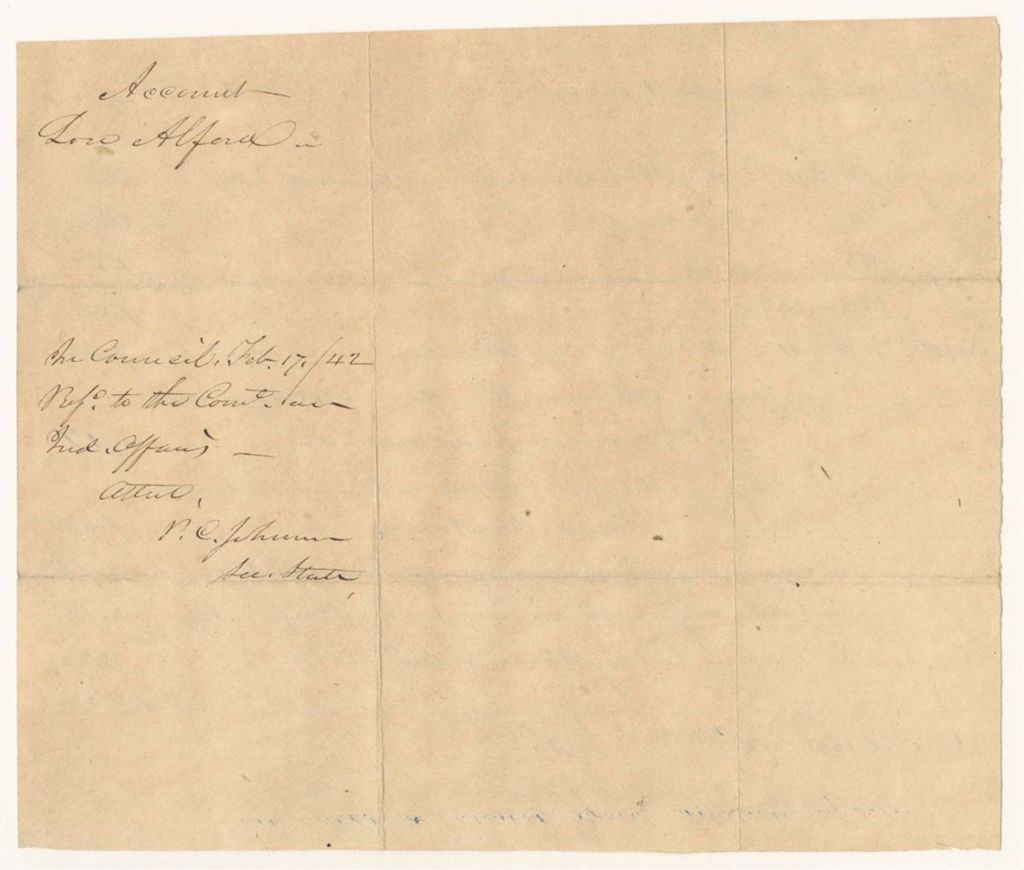 Account
Lore Alford
In Council, Feb. 17, /42
Refd. to the Come. on
Ind. Affairs
Attest,
P. C. Johnson
Sec. State,